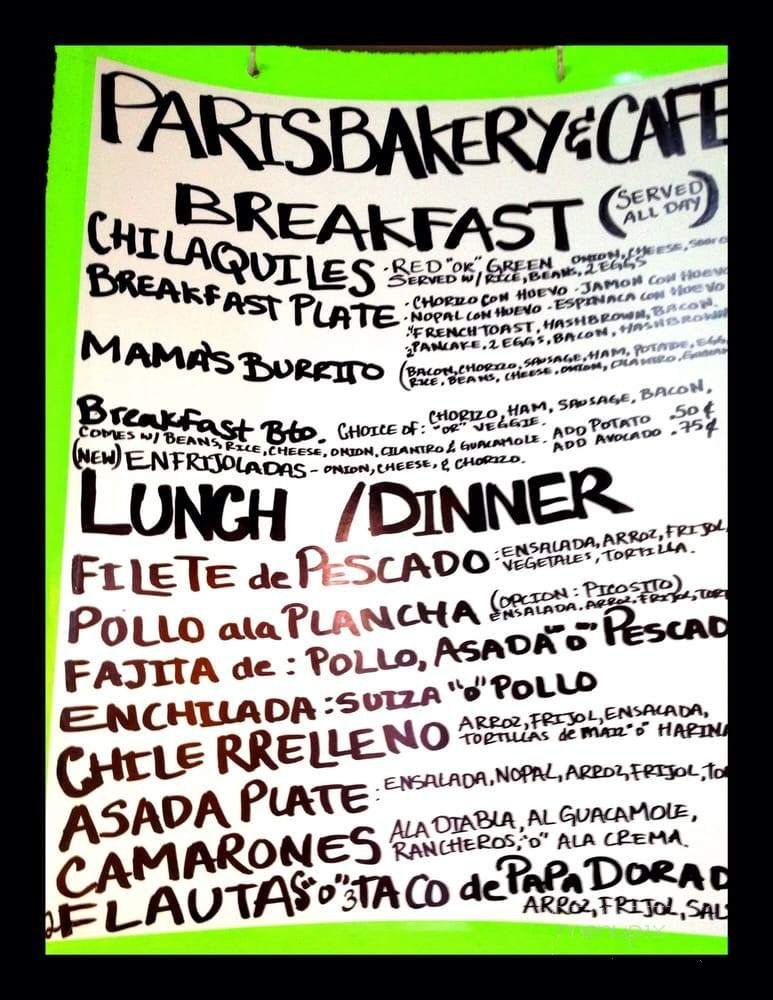 PARIS BAKERY & CAFE
BREAKFAST (SERVED ALL DAY)
CHILAQUILES · RED "OR" GREEN ONION, CHEESE,
SERVED W/ RICE, BEANS, 2 EGGS
BREAKFAST PLATE · CHORIZO CON HUEVO · JAMON CON HUEVO
· NOPAL CON HUEVO · ESPINACA CON HUEVO
FRENCH TOAST, HASHBROWN, BACON.
PANCAKE, 2 EGGS, BACON, HASHBROWN
MAMA'S BURRITO (BACON, CHORIZO, SAUSAGE, HAM, POTATOE, EGG
RICE, BEANS, CHEESE, ONION, CILANTRO,
Breakfast Bto. CHOICE OF: CHORIZO, HAM, SAUSAGE, BACON,
"OR" VEGGIE.
COMES W/ BEANS, RICE, CHEESE, ONION, CILANTRO & GUACAMOLE. ADD POTATO .50¢
ADD AVOCADO .75¢
(NEW) ENFRIJOLADAS - ONION, CHEESE, & CHORIZO.
LUNCH / DINNER
FILETE de PESCADO: ENSALADA, ARROZ, FRIJOL,
VEGETALES, TORTILLA.
POLLO ala PLANCHA (OPCION: PICOSITO)
ENSALADA, ARROZ, FRIJOL, TOR
FAJITA de: POLLO, ASADA "O" PESCAD
ENCHILADA: SUIZA "O" POLLO
CHILE RRELLENO ARROZ, FRIJOL, ENSALADA,
TORTILLAS de MAIZ "O" HARINA
ASADA PLATE: ENSALADA, NOPAL, ARROZ, FRIJOL, TO
CAMARONES ALA DIABLA, AL GUACAMOLE,
RANCHEROS, "O" ALA CREMA.
2 FLAUTAS "O" 3 TACO de PAPA DORAD
ARROZ, FRIJOL, SAL